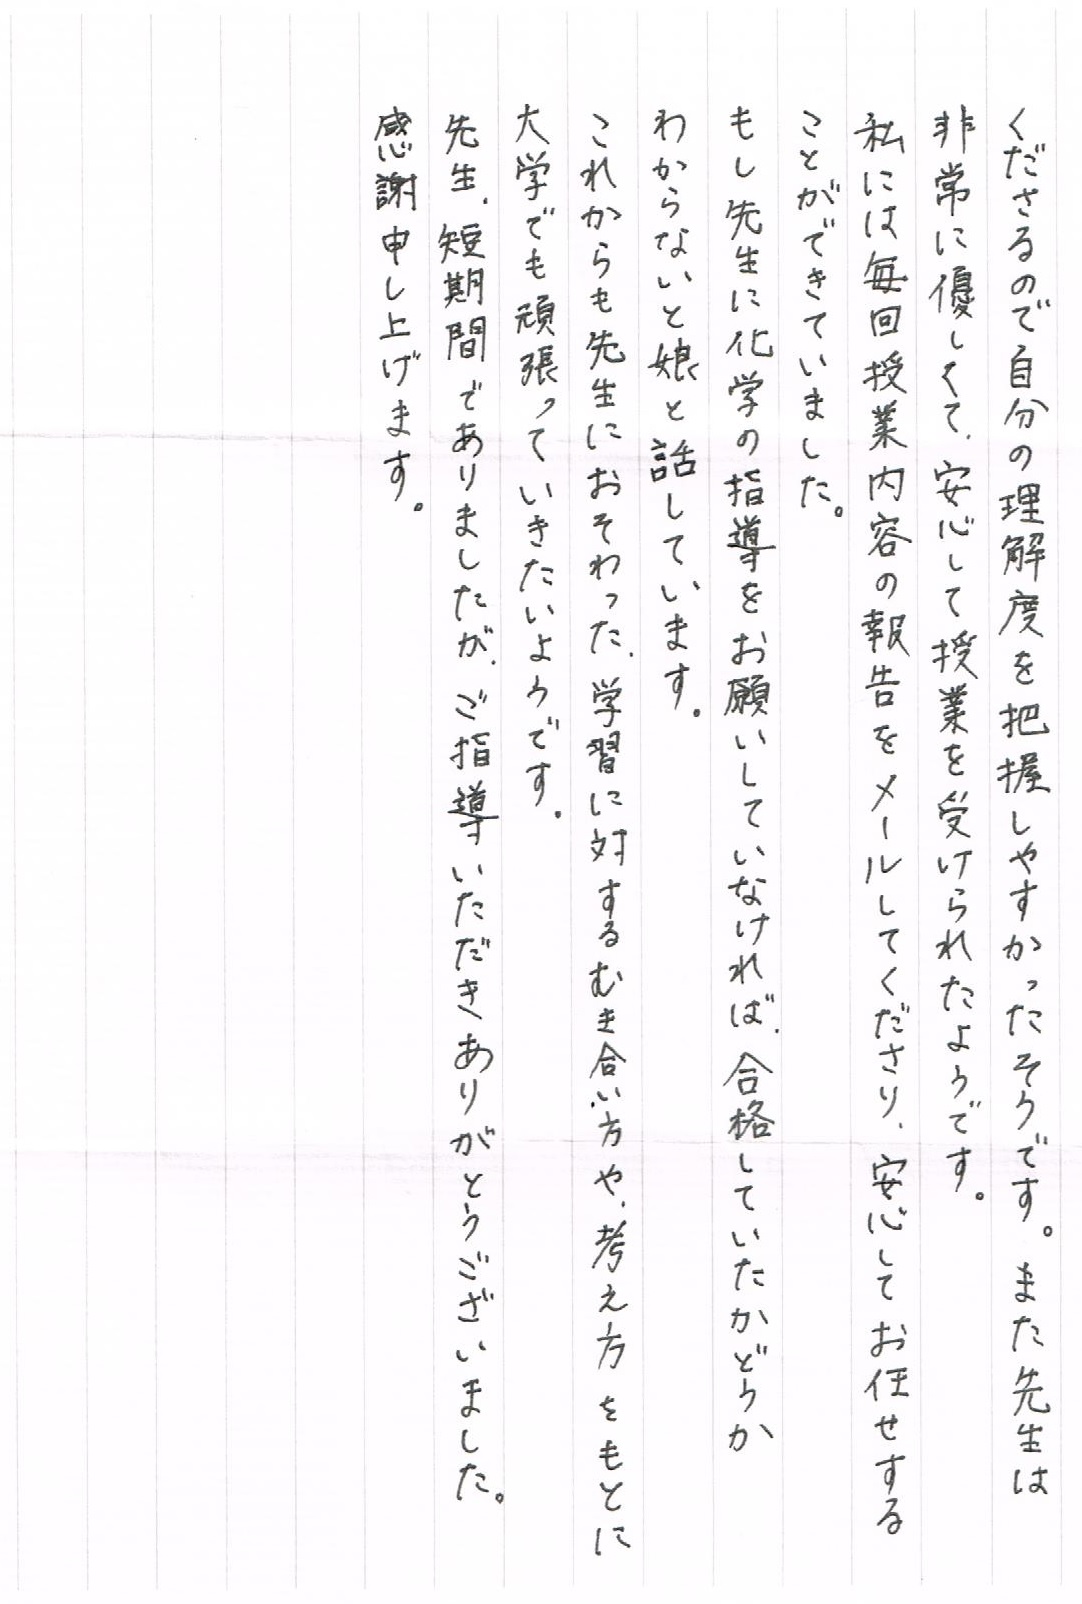 くださるので自分の理解度を把握しやすかったそうです。また先生は
非常に優しくて、安心して授業を受けられたようです。
私には毎回授業内容の報告をメールしてくださり、安心してお任せする
ことができていました。
もし先生に化学の指導をお願いしていなければ、合格していたかどうか
わからないと娘と話しています。
これからも先生におそわった、学習に対するむき合い方や、考え方をもとに
大学でも頑張っていきたいようです。
先生、短期間でありましたが、ご指導いただきありがとうございました。
感謝申し上げます。